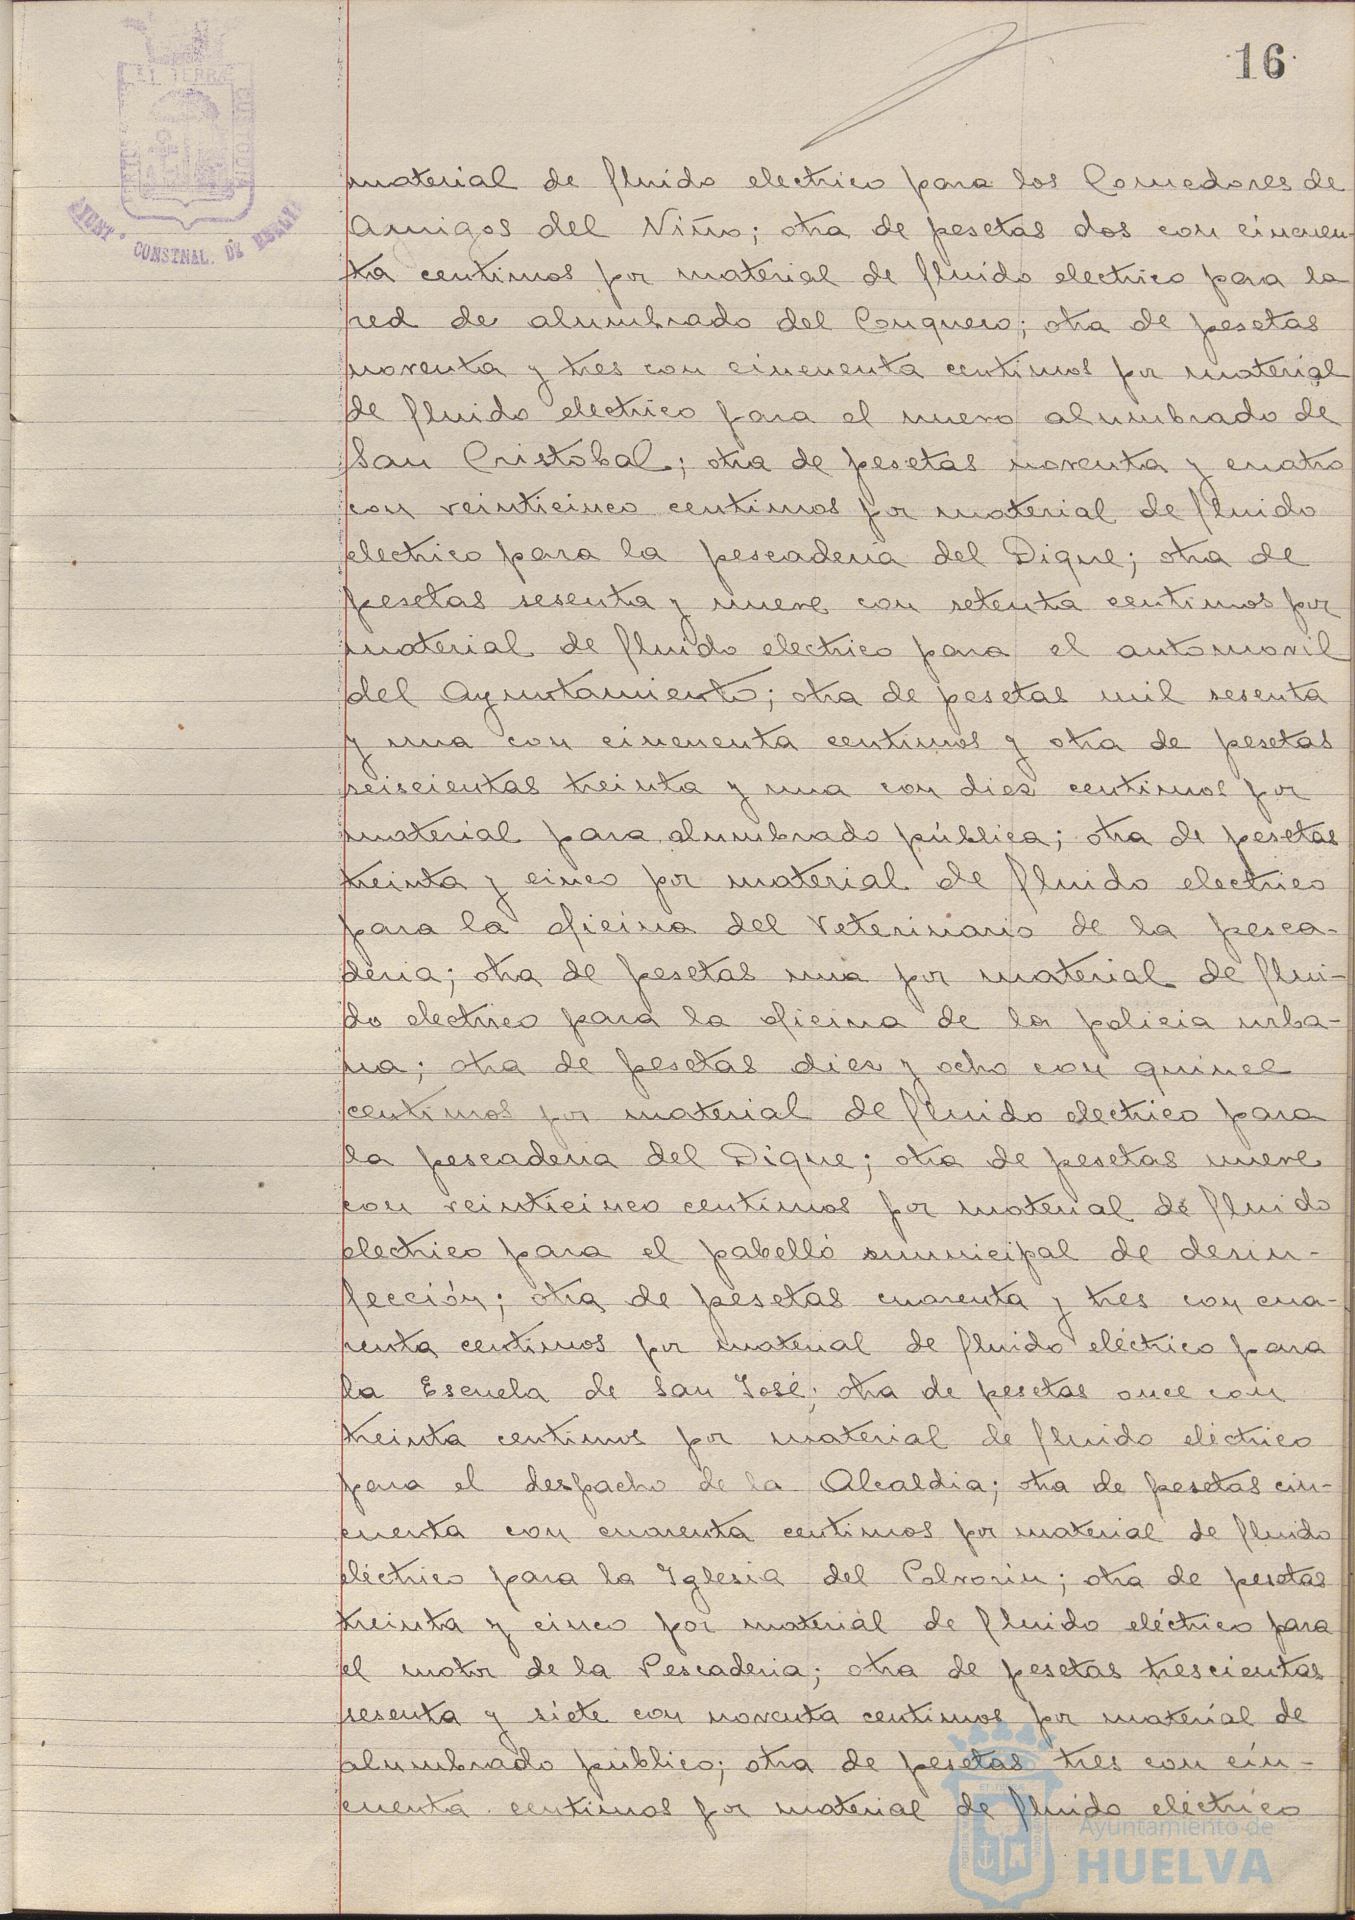 16
ET TERRÆ
CUSTODIA
AYUNT. CONSTNAL. DE HUELVA
material de fluido electrico para los Comedores de
Amigos del Niño; otra de pesetas dos con cincuen-
ta centimos por material de fluido electrico para la
red de alumbrado del Conquero; otra de pesetas
noventa y tres con cincuenta centimos por material
de fluido electrico para el nuevo alumbrado de
San Cristobal; otra de pesetas noventa y cuatro
con veinticinco centimos por material de fluido
electrico para la pescaderia del Dique; otra de
pesetas sesenta y nueve con setenta centimos por
material de fluido electrico para el automovil
del Ayuntamiento; otra de pesetas mil sesenta
y una con cincuenta centimos y otra de pesetas
seiscientas treinta y una con diez centimos por
material para alumbrado pública; otra de pesetas
treinta y cinco por material de fluido electrico
para la oficina del Veterinario de la pesca-
deria; otra de pesetas una por material de flui-
do electrico para la oficina de la policia urba-
na; otra de pesetas diez y ocho con quince
centimos por material de fluido electrico para
la pescaderia del Dique; otra de pesetas nueve
con veinticinco centimos por material de fluido
electrico para el pabelló municipal de desin-
fección; otra de pesetas cuarenta y tres con cua-
renta centimos por material de fluido eléctrico para
la Escuela de San José; otra de pesetas once con
treinta centimos por material de fluido eléctrico
para el despacho de la Alcaldia; otra de pesetas cin-
cuenta con cuarenta centimos por material de fluido
eléctrico para la Iglesia del Polvorin; otra de pesetas
treinta y cinco por material de fluido eléctrico para
el motor de la Pescaderia; otra de pesetas trescientas
sesenta y siete con noventa centimos por material de
alumbrado público; otra de pesetas tres con cin-
cuenta centimos por material de fluido eléctrico
Ayuntamiento de
HUELVA